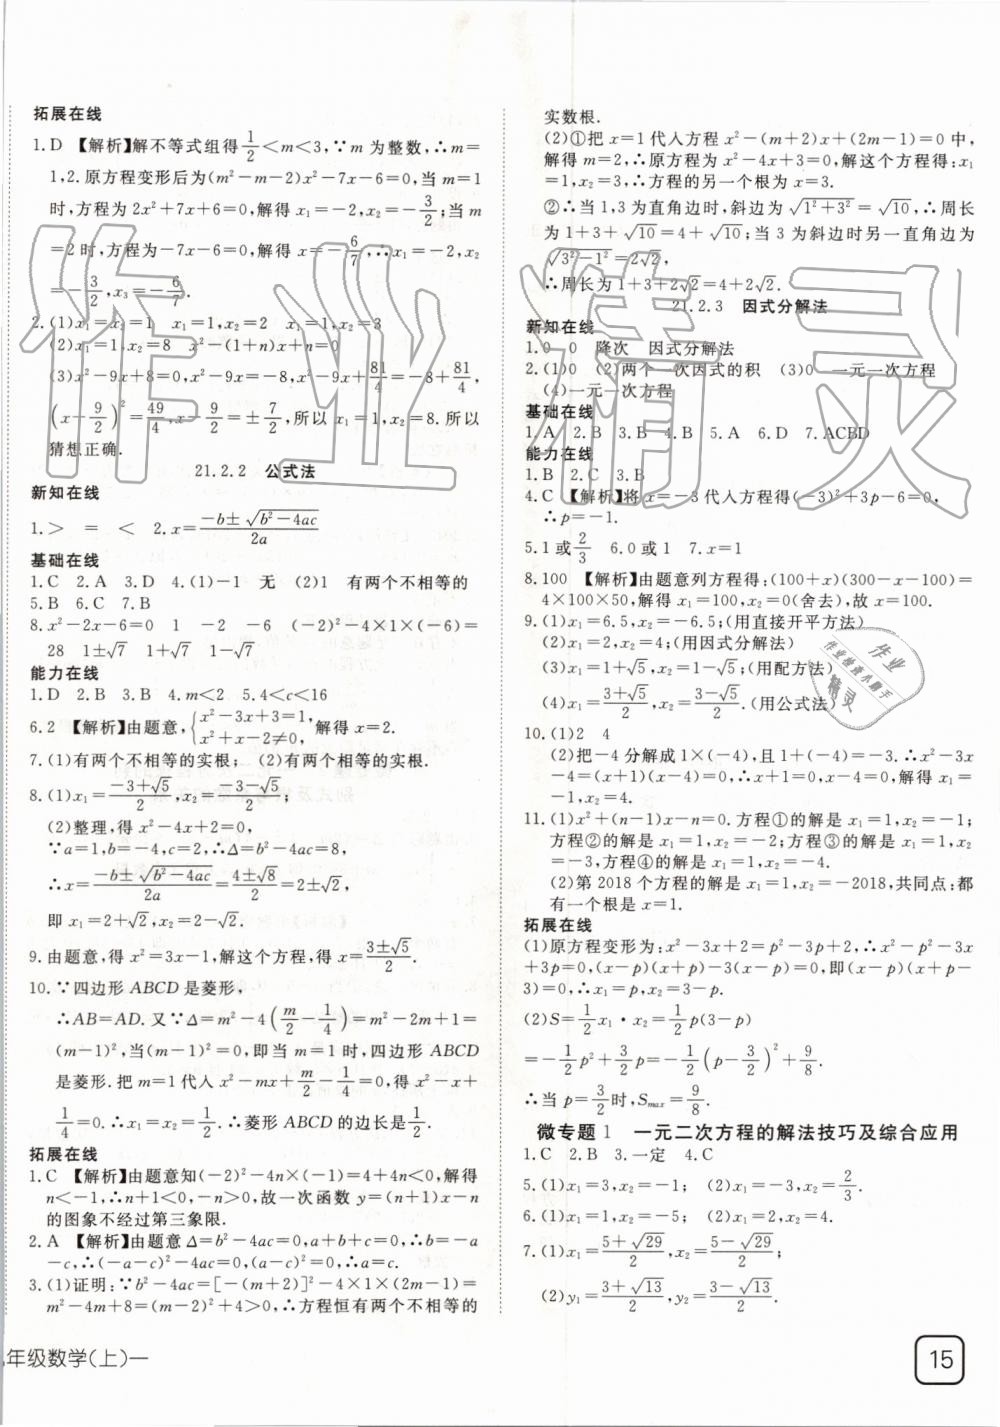 拓展在线
1.D 【解析】解不等式组得1/2<m<3,∵m为整数,∴m=
1,2.原方程变形后为(m²-m-2)x²-7x-6=0,当m=1
时,方程为2x²+7x+6=0,解得x₁=-2,x₂=-3/2;当m
=2时,方程为-7x-6=0,解得x=-6/7,∴x₁=-2,x₂
=-3/2,x₃=-6/7.
2.(1)x₁=x₂=1 x₁=1,x₂=2 x₁=1,x₂=3
(2)x₁=1,x₂=8 x²-(1+n)x+n=0
(3)x²-9x+8=0,x²-9x=-8,x²-9x+81/4=-8+81/4,
(x-9/2)²=49/4,x-9/2=±7/2,所以x₁=1,x₂=8.所以
猜想正确.
21.2.2 公式法
新知在线
1.> = < 2.x=(-b±√(b²-4ac))/2a
基础在线
1.C 2.A 3.D 4.(1)-1 无 (2)1 有两个不相等的
5.B 6.C 7.B
8.x²-2x-6=0 1 -2 -6 (-2)²-4×1×(-6)=
28 1±√7 1+√7 1-√7
能力在线
1.D 2.B 3.B 4.m<2 5.4<c<16
6.2 【解析】由题意,{x²-3x+3=1, x²+x-2≠0, 解得x=2.
7.(1)有两个不相等的实根; (2)有两个不相等的实根.
8.(1)x₁=(-3+√5)/2,x₂=(-3-√5)/2;
(2)整理,得x²-4x+2=0,
∵a=1,b=-4,c=2,∴Δ=b²-4ac=8,
∴x=(-b±√(b²-4ac))/2a=(4±√8)/2=2±√2,
即x₁=2+√2,x₂=2-√2.
9.由题意,得x²=3x-1,解这个方程,得x=(3±√5)/2.
10.∵四边形ABCD是菱形,
∴AB=AD.又∵Δ=m²-4(m/2-1/4)=m²-2m+1=
(m-1)²,当(m-1)²=0,即当m=1时,四边形ABCD
是菱形.把m=1代人x²-mx+m/2-1/4=0,得x²-x+
1/4=0.∴x₁=x₂=1/2.∴菱形ABCD的边长是1/2.
拓展在线
1.C 【解析】由题意知(-2)²-4n×(-1)=4+4n<0,解得
n<-1,∴n+1<0,-n>0,故一次函数y=(n+1)x-n
的图象不经过第三象限.
2.A 【解析】由题意Δ=b²-4ac=0,a+b+c=0,∴b=-a
-c,∴(-a-c)²-4ac=0,(a-c)²=0,∴a=c.
3.(1)证明:∵b²-4ac=[-(m+2)]²-4×1×(2m-1)=
m²-4m+8=(m-2)²+4>0,∴方程恒有两个不相等的
实数根.
(2)①把x=1代人方程x²-(m+2)x+(2m-1)=0中,
解得m=2,∴原方程为x²-4x+3=0,解这个方程得:x₁
=1,x₂=3,∴方程的另一个根为x=3.
②∴当1,3为直角边时,斜边为√(1²+3²)=√10,∴周长
为1+3+√10=4+√10;当3为斜边时另一直角边为
√(3²-1²)=2√2,
∴周长为1+3+2√2=4+2√2.
21.2.3 因式分解法
新知在线
1.0 0 降次 因式分解法
2.(1)0 (2)两个一次因式的积 (3)0 一元一次方程
(4)一元一次方程
基础在线
1.A 2.B 3.B 4.B 5.A 6.D 7.ACBD
能力在线
1.B 2.C 3.B
4.C 【解析】将x=-3代入方程得(-3)²+3p-6=0,
∴p=-1.
5.1或2/3 6.0或1 7.x=1
8.100 【解析】由题意列方程得:(100+x)(300-x-100)=
4×100×50,解得x₁=100,x₂=0(舍去),故x=100.
9.(1)x₁=6.5,x₂=-6.5;(用直接开平方法)
(2)x₁=4,x₂=-2;(用因式分解法)
(3)x₁=1+√5,x₂=1-√5;(用配方法)
(4)x₁=(3+√5)/2,x₂=(3-√5)/2.(用公式法)
10.(1)2 4
(2)把-4分解成1×(-4),且1+(-4)=-3.∴x²-3x
-4=(x+1)(x-4)=0,∴x+1=0,x-4=0.解得x₁=
-1,x₂=4.
11.(1)x²+(n-1)x-n=0.方程①的解是x₁=x₂=1;
方程②的解是x₁=1,x₂=-2;方程③的解是x₁=1,x₂
=-3,方程④的解是x₁=1,x₂=-4.
(2)第2018个方程的解是x₁=1,x₂=-2018,共同点:都
有一个根是x=1.
拓展在线
(1)原方程变形为:x²-3x+2=p²-3p+2,∴x²-p²-3x
+3p=0,(x-p)(x+p)-3(x-p)=0,即(x-p)(x+p-
3)=0,∴x₁=p,x₂=3-p.
(2)S=1/2x₁·x₂=1/2p(3-p)
=-1/2p²+3/2p=-1/2(p-3/2)²+9/8.
∴当p=3/2时,Smax=9/8.
微专题1 一元二次方程的解法技巧及综合应用
1.C 2.B 3.一定 4.C
5.(1)x₁=3,x₂=-1; (2)x₁=-3,x₂=2/3.
6.(1)x₁=1,x₂=-5; (2)x₁=2,x₂=4.
7.(1)x₁=(5+√29)/2,x₂=(5-√29)/2;
(2)y₁=(3+√13)/2,y₂=(3-√13)/2.
年级数学(上)一
15
作业精灵
作业
作业检查小助手
精灵